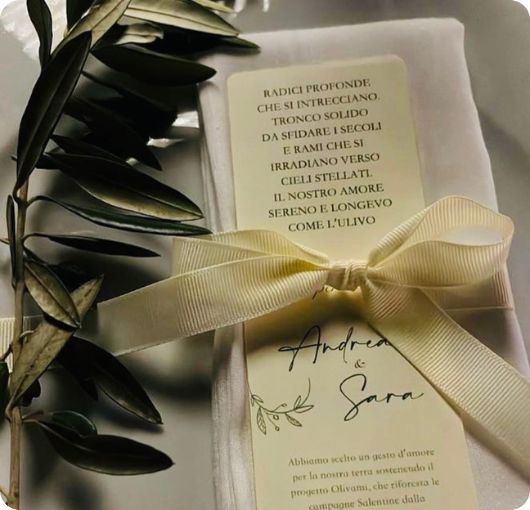 RADICI PROFONDE
CHE SI INTRECCIANO.
TRONCO SOLIDO
DA SFIDARE I SECOLI
E RAMI CHE SI
IRRADIANO VERSO
CIELI STELLATI.
IL NOSTRO AMORE
SERENO E LONGEVO
COME L'ULIVO
Andrea
&
Sara
Abbiamo scelto un gesto d'amore
per la nostra terra sostenendo il
progetto Olivami, che riforesta le
campagne Salentine dalla